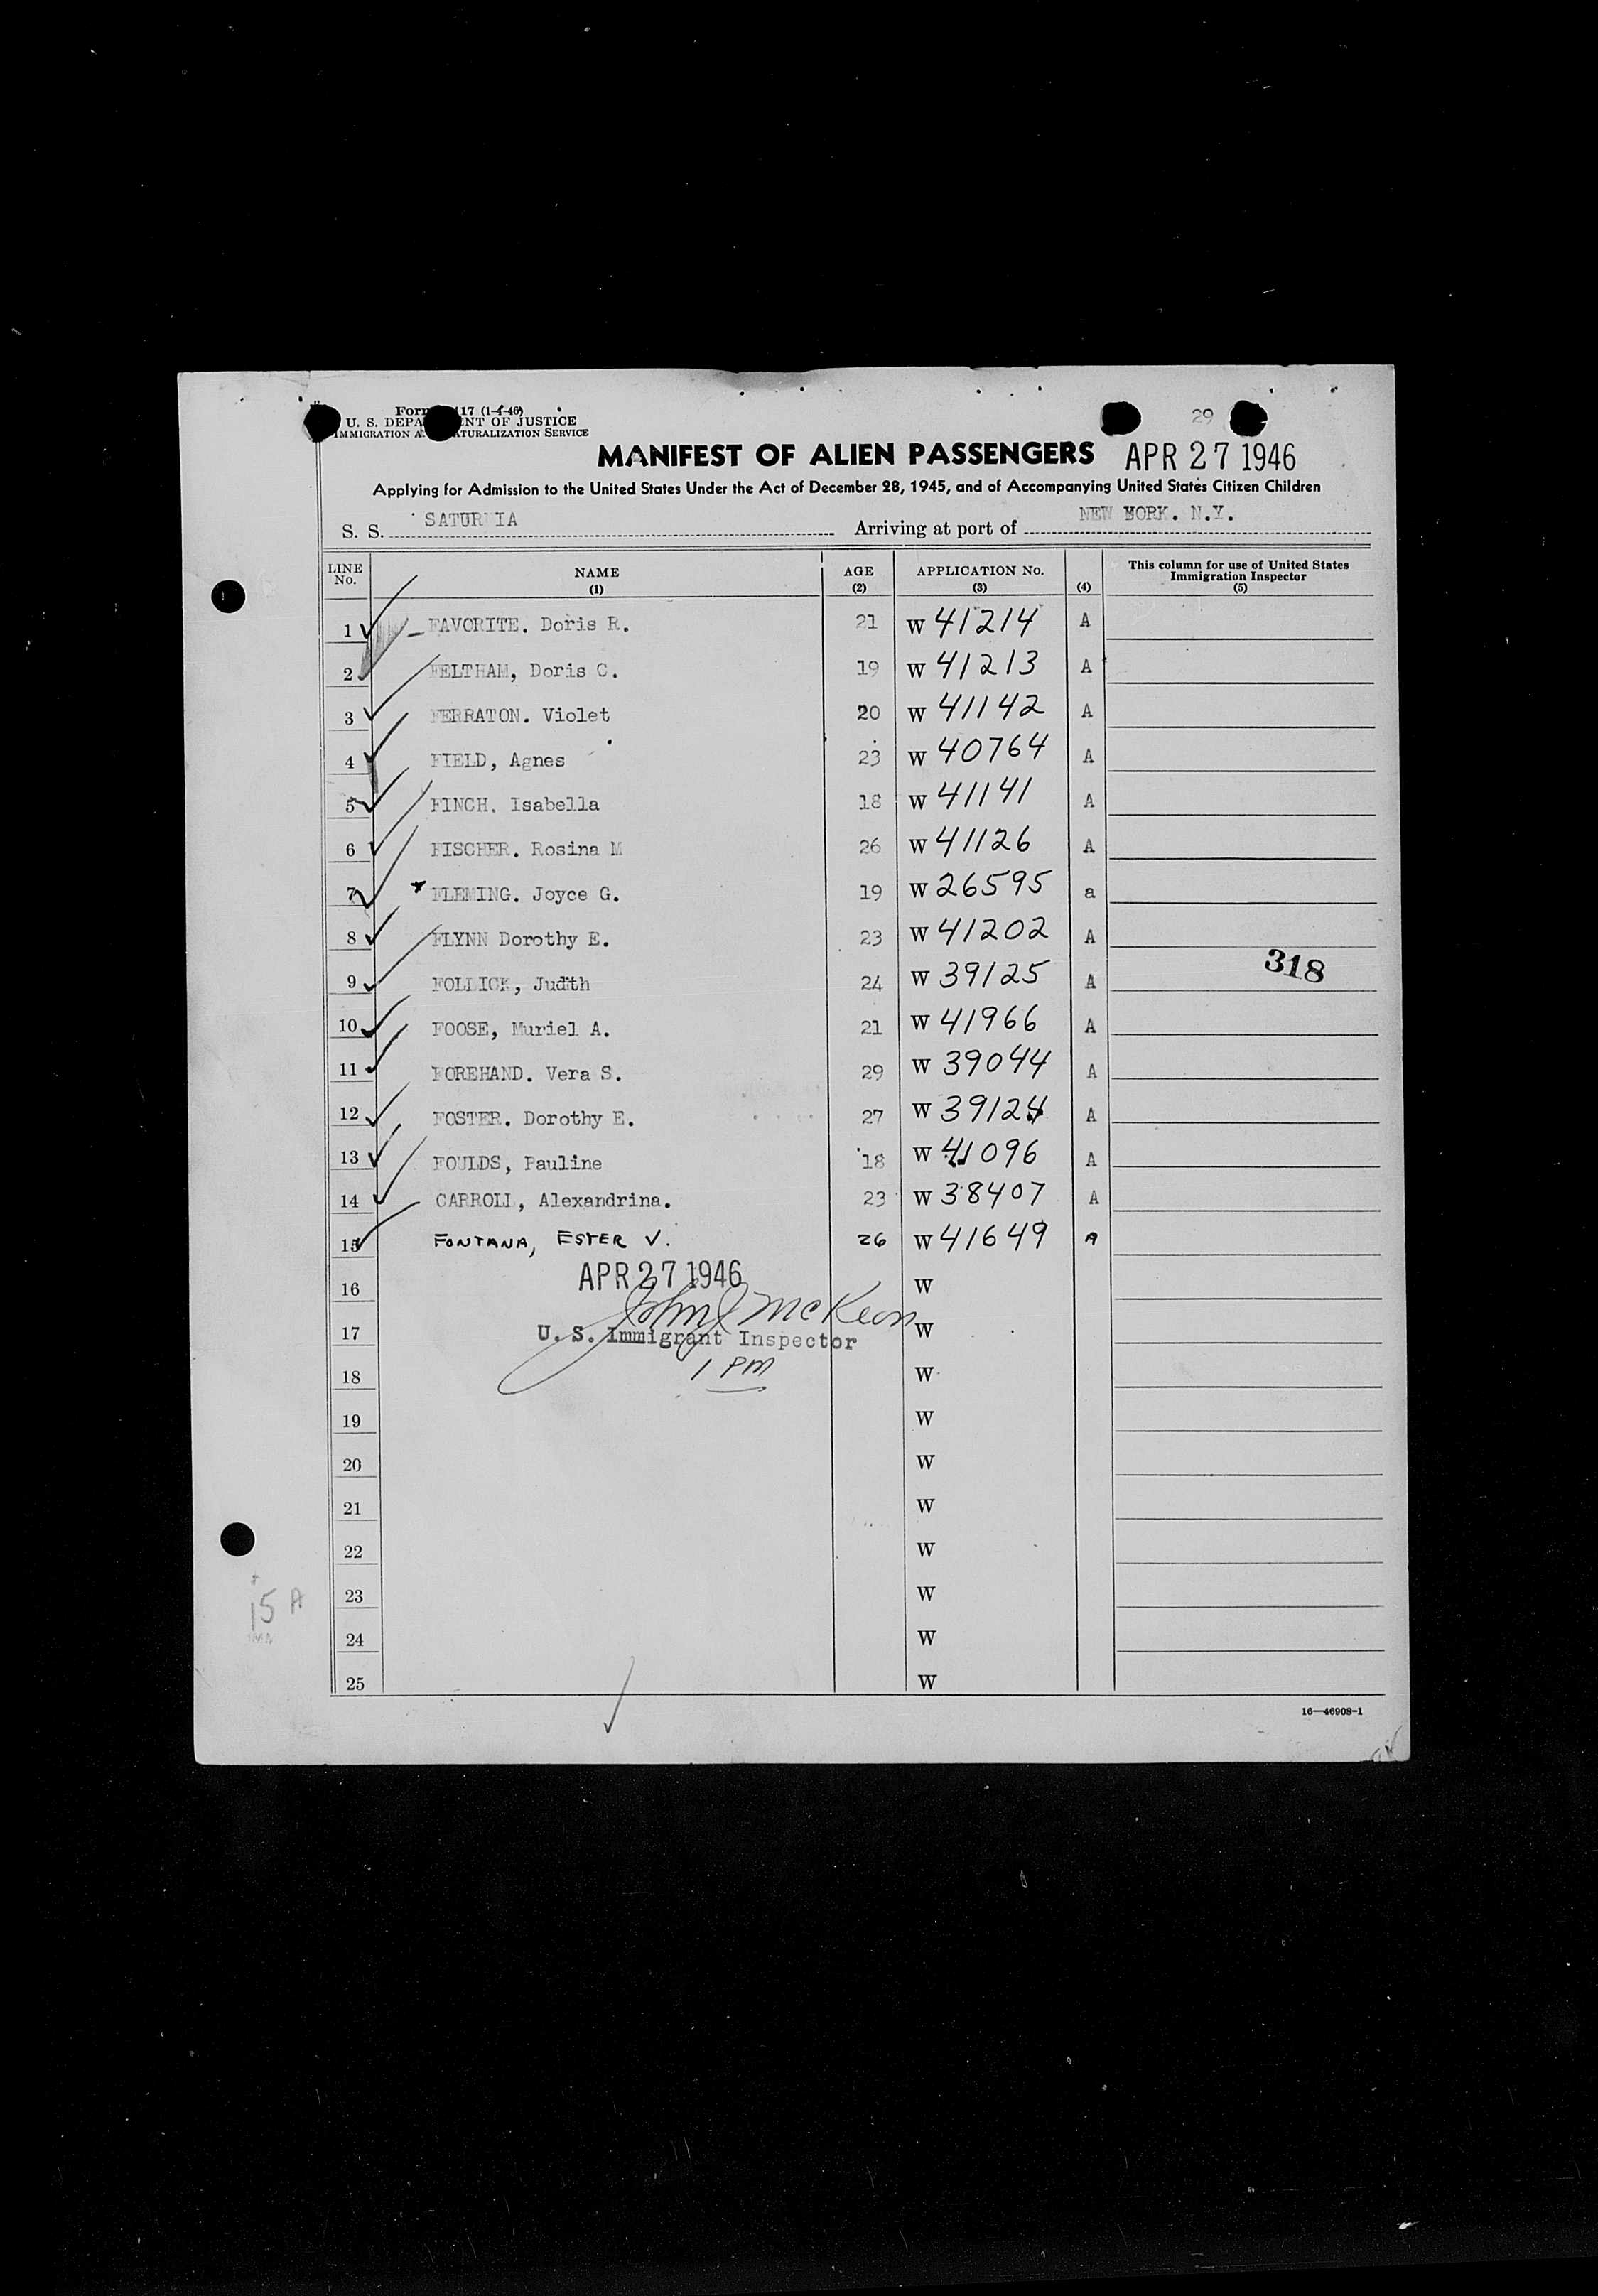 Form 117 (1-4-46)
U. S. DEPA ENT OF JUSTICE
IMMIGRATION A TURALIZATION SERVICE
29
MANIFEST OF ALIEN PASSENGERS APR 27 1946
Applying for Admission to the United States Under the Act of December 28, 1945, and of Accompanying United States Citizen Children
S. S. SATURNIA Arriving at port of NEW YORK. N.Y.
LINE No. NAME (1) AGE (2) APPLICATION No. (3) (4) This column for use of United States Immigration Inspector (5)
1 FAVORITE. Doris R. 21 W 41214 A
2 FELTHAM, Doris C. 19 W 41213 A
3 FERRATON. Violet 20 W 41142 A
4 FIELD, Agnes 23 W 40764 A
5 FINCH. Isabella 18 W 41141 A
6 FISCHER. Rosina M 26 W 41126 A
7 FLEMING. Joyce G. 19 W 26595 a
8 FLYNN Dorothy E. 23 W 41202 A
9 FOLLICK, Judith 24 W 39125 A
318
10 FOOSE, Muriel A. 21 W 41966 A
11 FOREHAND. Vera S. 29 W 39044 A
12 FOSTER. Dorothy E. 27 W 39124 A
13 FOULDS, Pauline 18 W 41096 A
14 CARROLL, Alexandrina. 23 W 38407 A
15 FONTANA, ESTER V. 26 W 41649 A
APR 27 1946
16 W
John J McKeon
17 U. S. Immigrant Inspector W
18 1 PM W
19 W
20 W
21 W
22 W
23 W
15 A
24 W
25 W
16—46908-1